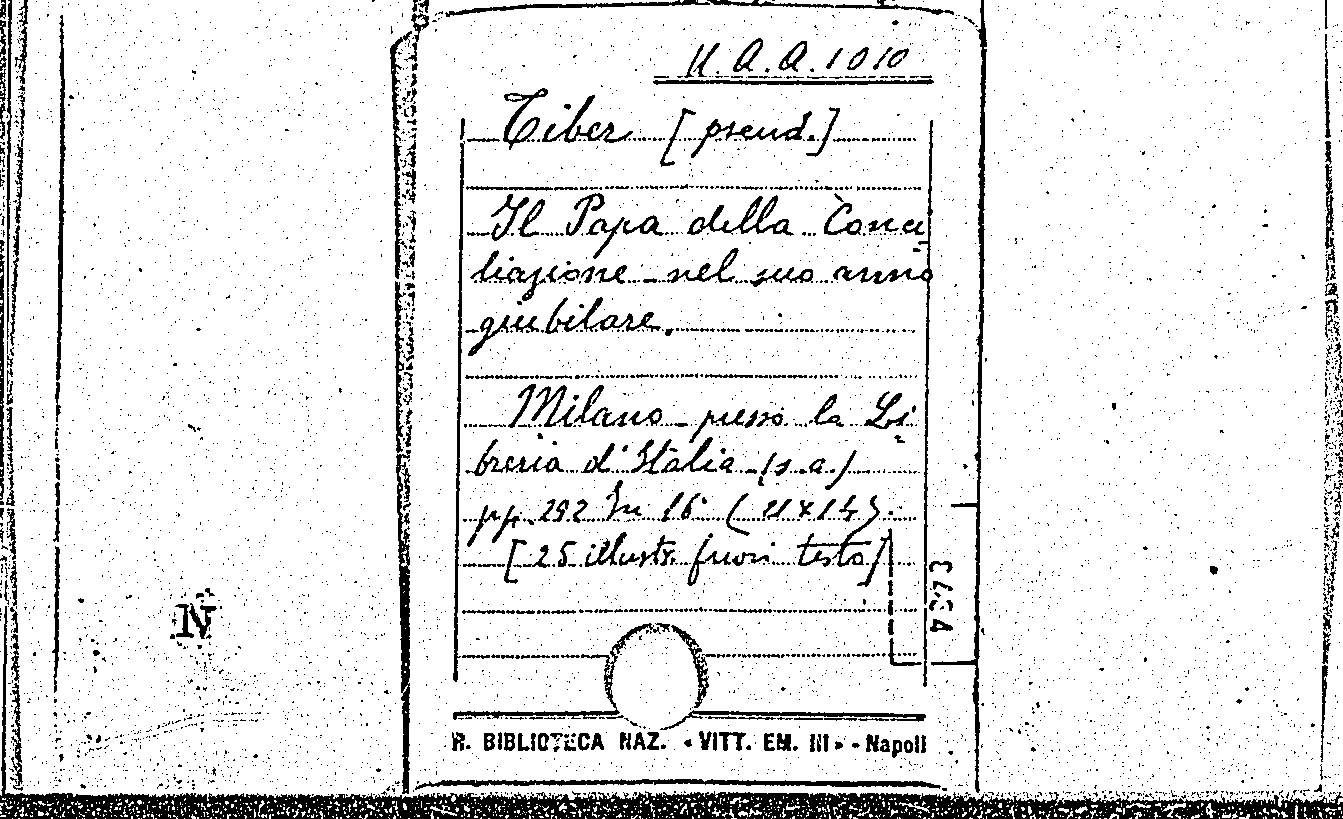 U. A. A. 1010
Tiber [pseud.]
Il Papa della Conci
liazione nel suo anno
giubilare.
Milano presso la Li
breria d'Italia (s.a.)
pp. 292 In 16° (21x14).
[25 illustr. fuori testo]
N
R. BIBLIOTECA NAZ. «VITT. EM. III» - Napoli